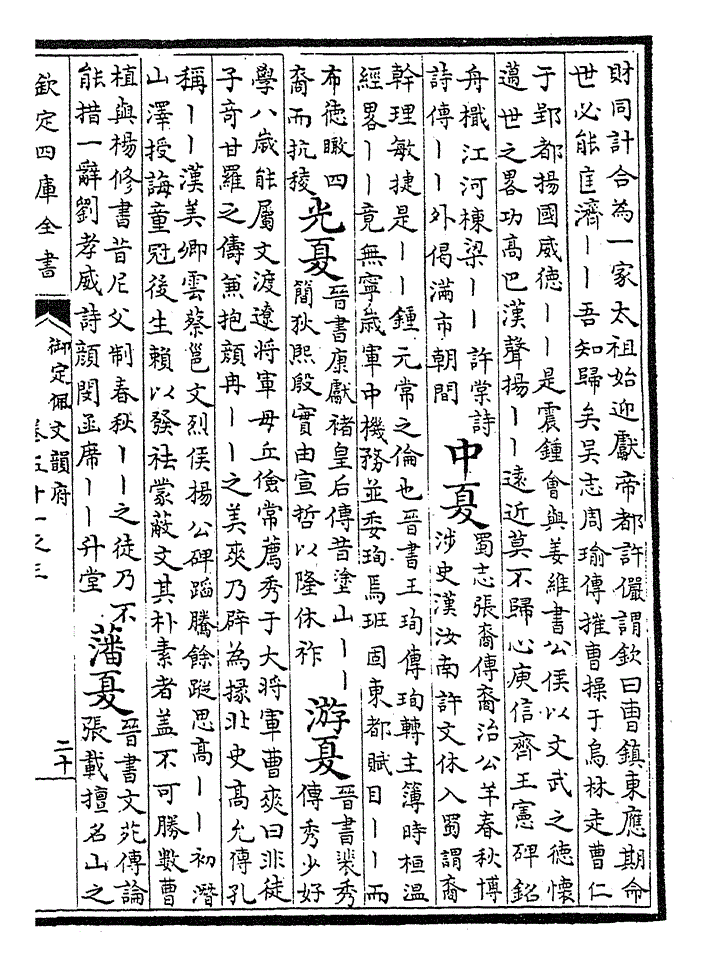 財同計合為一家太祖始迎獻帝都許儼謂欽曰曹鎮東應期命
世必能匡濟丨丨吾知歸矣吳志周瑜傳摧曹操于烏林走曹仁
于郢都揚國威德丨丨是震鍾會與姜維書公侯以文武之德懷
邁世之畧功高巴漢聲揚丨丨遠近莫不歸心庾信齊王憲碑銘
舟檝江河棟梁丨丨許棠詩
詩傳丨丨外偈滿市朝間
中夏
蜀志張裔傳裔治公羊春秋博
涉史漢汝南許文休入蜀謂裔
幹理敏捷是丨丨鍾元常之倫也晉書王珣傳珣轉主簿時桓溫
經畧丨丨竟無寧歲軍中機務並委珣焉班固東都賦目丨丨而
布德瞰四
裔而抗稜
光夏
晉書康獻禇皇后傳昔塗山丨丨
簡狄熙殷實由宣哲以隆休祚
游夏
晉書裴秀
傳秀少好
學八歲能屬文渡遼將軍毋丘儉常薦秀于大將軍曹爽曰非徒
子竒甘羅之儔兼抱顔冉丨丨之美爽乃辟為掾北史高允傳孔
稱丨丨漢美卿雲蔡邕文烈侯揚公碑蹈騰餘蹤思高丨丨初潛
山澤授誨童冠後生賴以發祛蒙蔽文其朴素者葢不可勝數曹
植與楊修書昔尼父制春秋丨丨之徒乃不
能措一辭劉孝威詩顔閔函席丨丨升堂
藩夏
晉書文苑傳論
張載擅名山之
欽定四庫全書
御定佩文韻府
卷五十一之三
二十